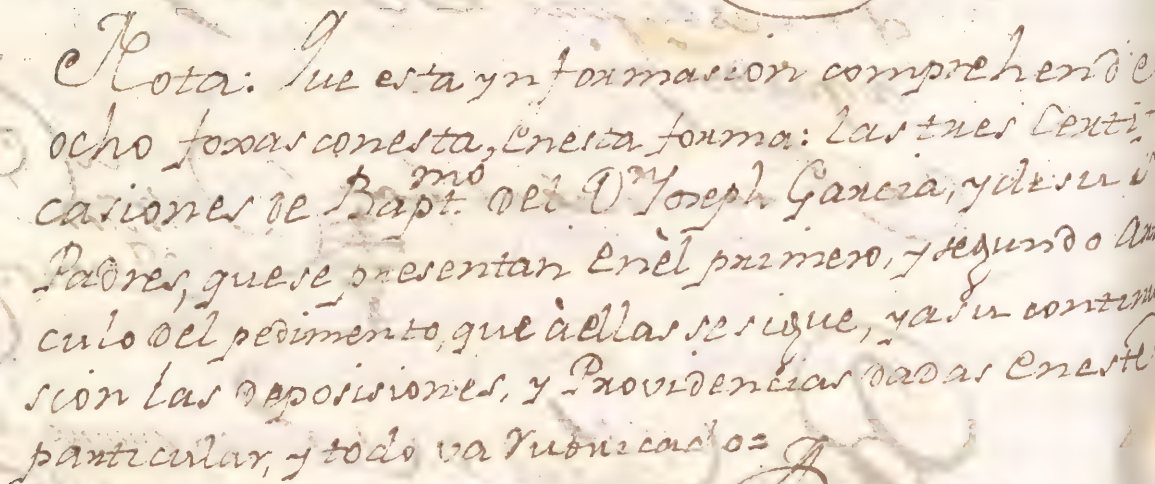 Nota: Que esta ynformasion comprehende
ocho foxas con esta, en esta forma: las tres Certifi
casiones de Bapt.mo del Dn Joseph Garcia, y de su s
Padres, que se presentan en èl primero, y segundo Arti
culo del pedimento, que à ellas se sigue, y a su continua
sion las deposisiones, y Providencias dadas en este
particular, y todo va rubricado=